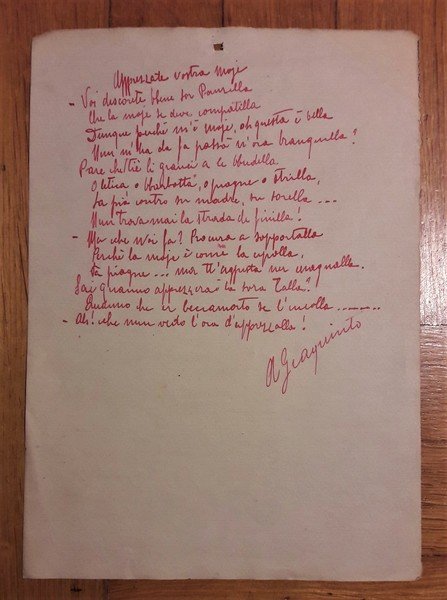 Apprezzate vostra moje
- Voi discorete bbene sor Pancilla
Che la moje se deve compatilla
Dunque perchè m'è moje, oh questa è bella
Nun m'ha da fa passà n'ora tranquilla?
Pare che tiè li granci a le bbudella
O letica o bbarbotta, o piagne o strilla,
La pià contro su madre, su sorella ...
Nun trova mai la strada de finilla!
- Ma che voi fa? Procura a sopportalla
Perchè la moje è come la cipolla,
Fa piagne ... ma tt'aggusta ner magnalla.
Sai quanno apprezzerai la sora Lalla?
Quanno che er beccamorto se l'incolla .......
- Ah! che nun vedo l'ora d'apprezzalla!
A Giaquinto